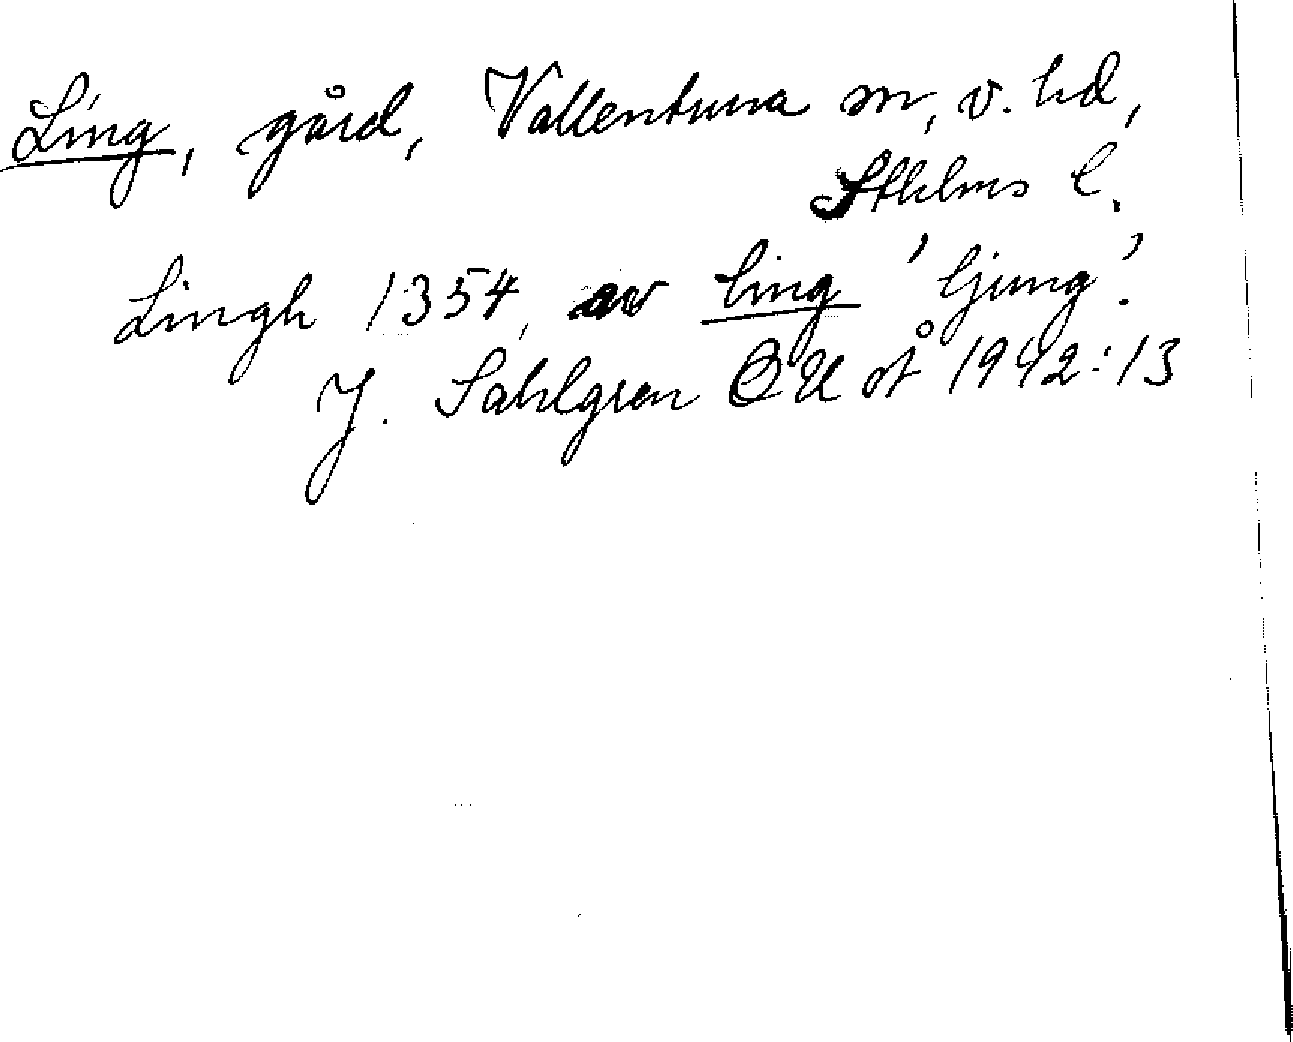 Ling, gård, Vallentuna sn, v. hd,
Sthlms l.
Lingh 1354, av ling 'ljung'.
J. Sahlgren OUÅ 1942:13